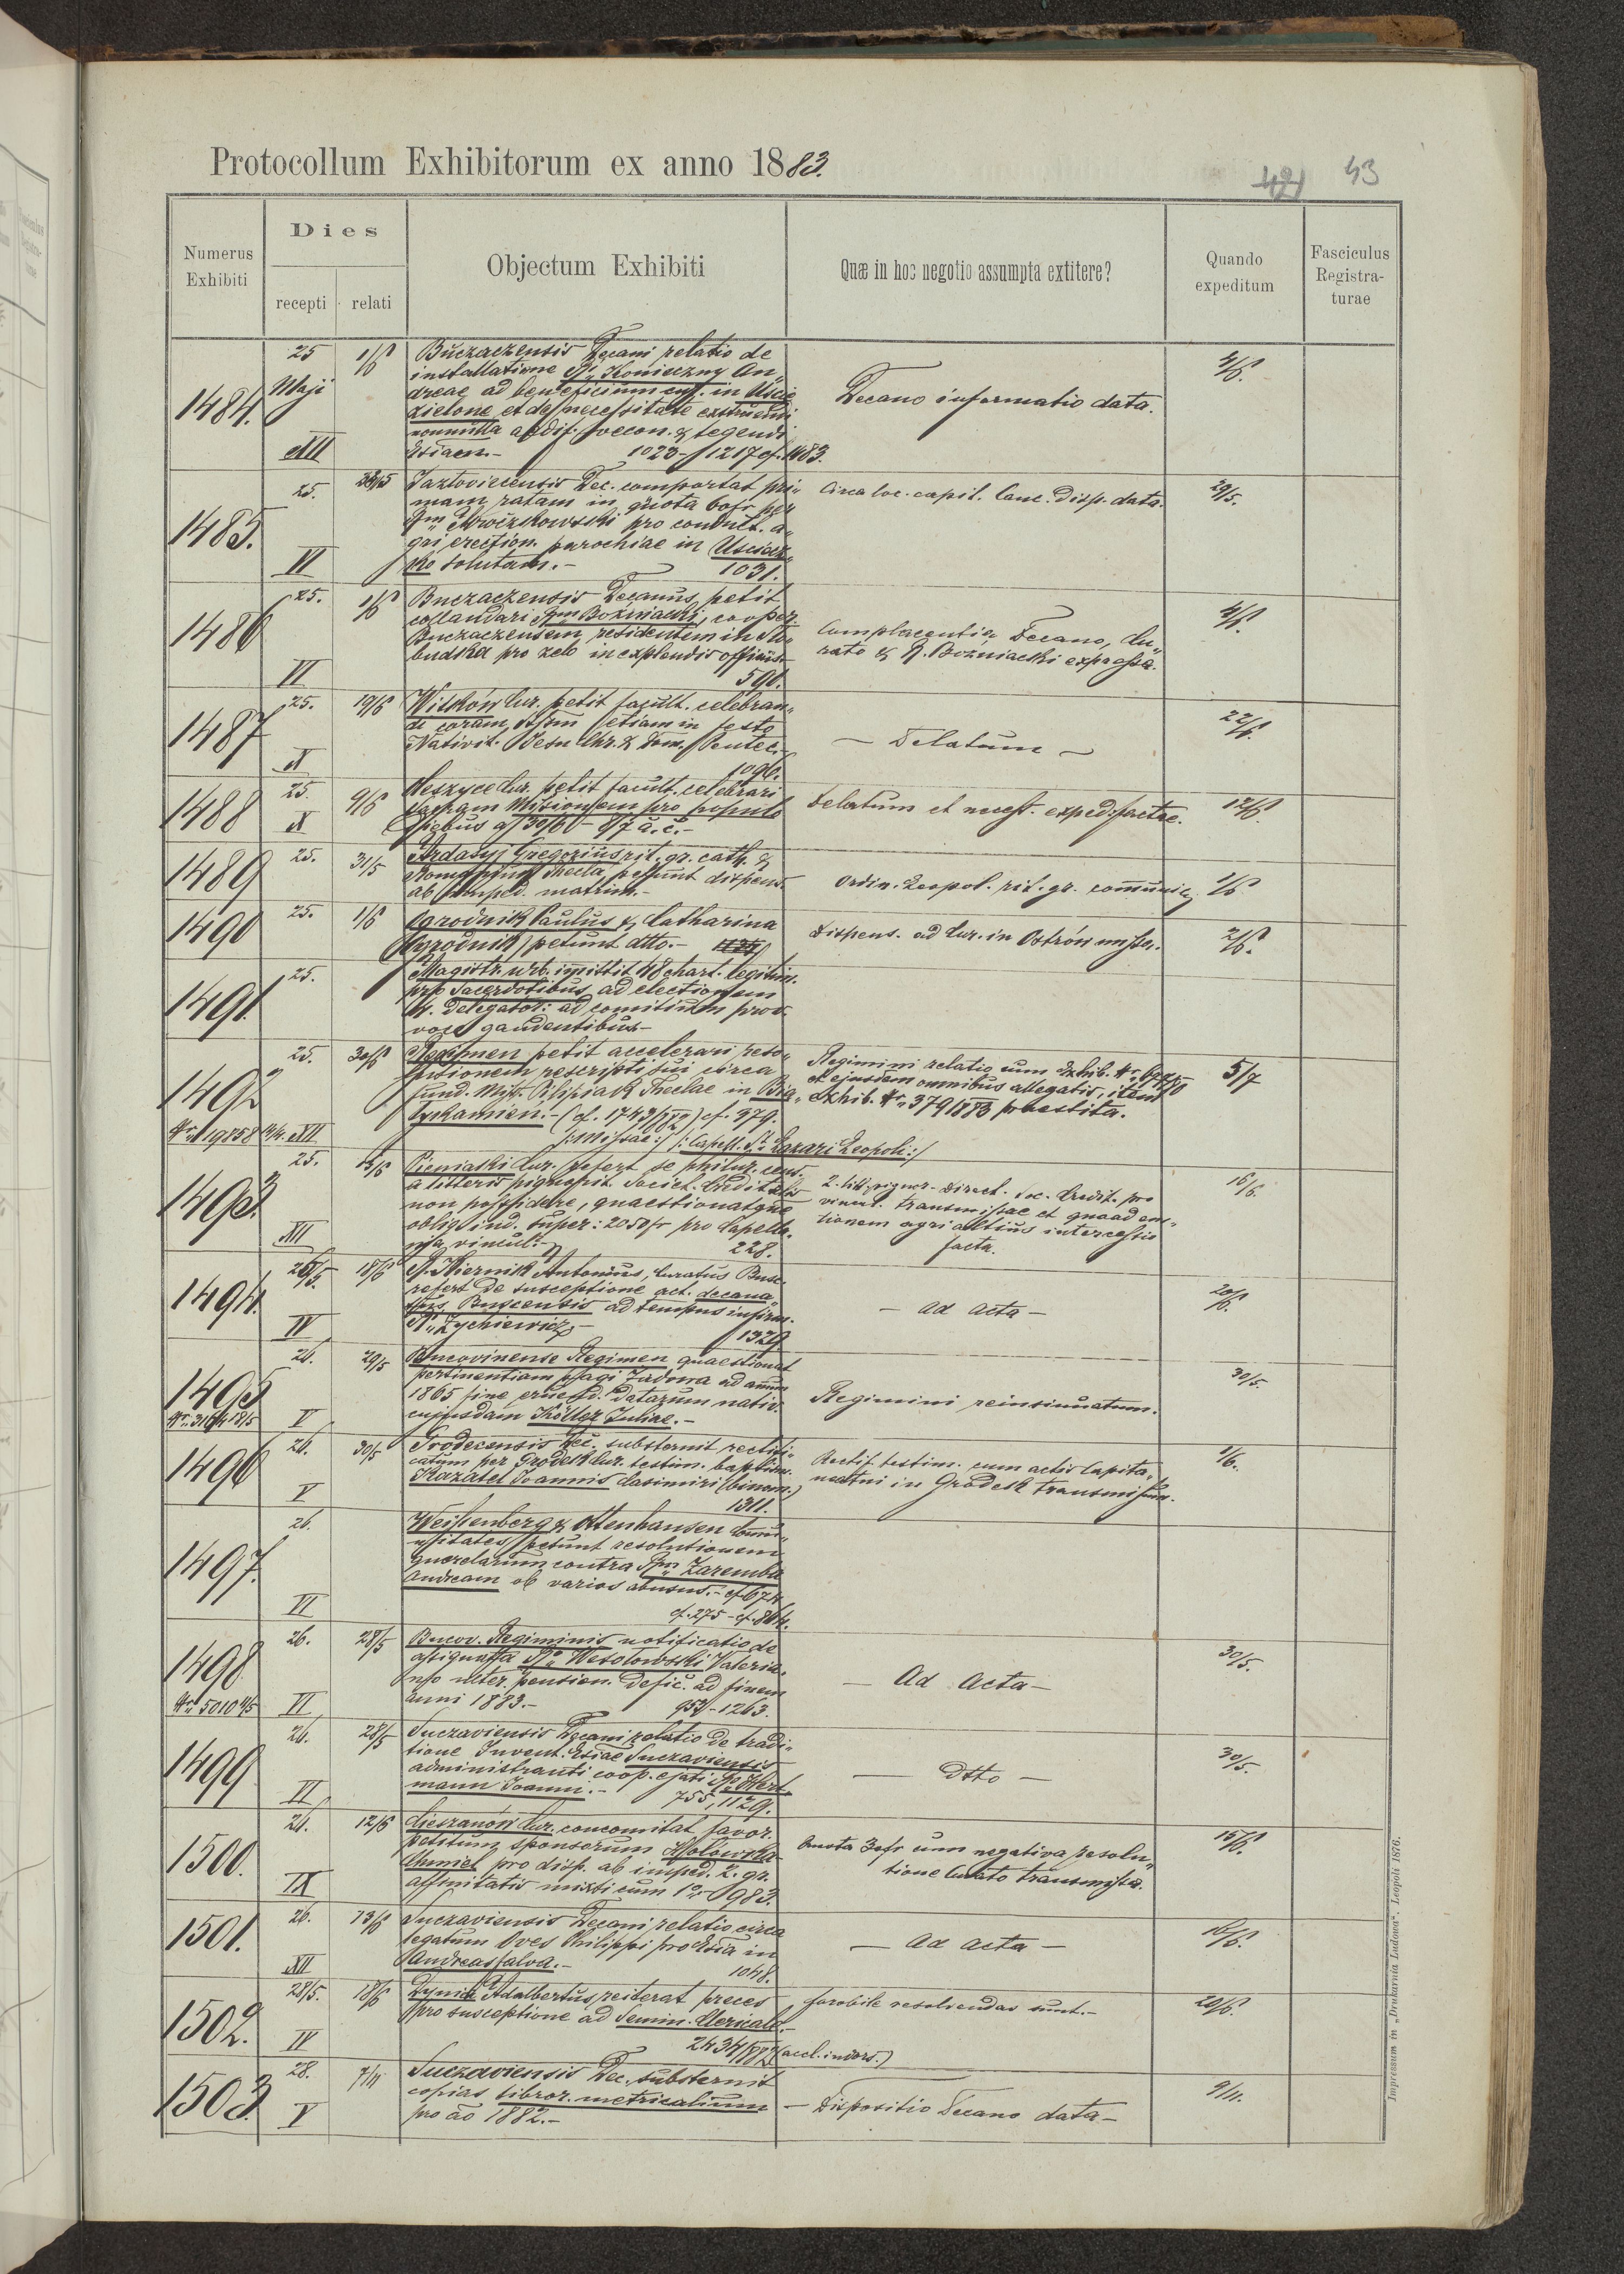 Protocollum Exhibitorum ex anno 1883.
421 43
Numerus Exhibiti
Dies
recepti relati
Objectum Exhibiti
Quæ in hoc negotio assumpta extitere?
Quando expeditum
Fasciculus Registra-
turae
1484.
25 Maji
XII
1/6
Buczaczensis Decani relatio de
installatione Rdi Konieczny An„
dreae ad beneficium cur. in Uście
zielone et de necessitate exstruendi
nonnulla aedif. oecon. & tegendi
Ecclam.- 1023 - 1217 cf. 1483.
Decano informatio data.
4/6.
1485.
25.
VI
28/5
Jazłoviecensis Dec. comportat pri„
mam ratam in quota 60fr per
Rdm Mroczkowski pro
gri erection. parochiae in Uściecz„
ko solutam.- 1031.
Circa loc. capit. Canc. Disp. data.
29/5.
1486
25.
VI
1/6
Buczaczensis Decanus petit
collaudari Rdm Bożniacki, cooper.
Buczaczensem, residentem in Sło„
budska pro zelo in explendis officiis.-
590.
Complacentia Decano, Cu„
rato & R. Bożniacki expressa.
4/6.
1487
25.
X
19/6
Witków Cur. petit facult. celebran„
di coram Ssmo etiam in festo
Nativit. Jesu Chr. & Dom. Pentec.
1096.
- Delatum -
22/6.
1488
25.
X
9/6
Cur. petit facult. celebrari
Sacram Missionem pro populo
diebus a 30/6 - 8/7 a. c.-
Delatum et necess. exped. factae.
12/6.
1489
25.
31/5
Ardasyj Gregorius rit. gr. cath. &
Thecla, petunt dispens.
ab imped. matrim.-
Ordin. Leopol. rit. gr. communic.
1/6
1490
25.
1/6
Ogrodnik Paulus & Catharina
Ogrodnik petunt dtto.-
Dispens. ad Cur. in Ostrów missa.
2/6.
1491.
25.
Magistr. urb. immittit 48 chart. legitim.
pro Sacerdotibus ad electionem
4. delegator: ad comitium prov.
voce gaudentibus-
1492
Nr. 19858
25.
XII
30/6
Regimen petit accelerari reso„
lutionem rescripti sui circa
fund. Miss. Pilipiak Theclae in Bia„
łykamien.- (cf. 1743/882) cf. 379.
Regimini relatio cum Exhib. Nr.
et ejusdem omnibus allegatis, item
exhib. Nr. 379/1883 praestita.
5/7
1493.
25.
XII
15/6
/: Missae :/ /: Capell. St. Lazari Leopoli :/
Pieniaski Cur. refert se
a litteris pignorit. Societ. Creditalis
non possidere, quaestionatque
oblig. ind. super: 2050fr pro Capella„
nia vincul.- 228.
2. litt. pignor. Direct. Soc. Credit. pro
vincul. transmissae et quoad em„
tionem agri altius intercessio
facta.
16/6.
1494.
26/5.
IV
18/6
R. Kiernik Antonius, Curatus Busc.
refert de susceptione act. decana„
tus Buscensis ad tempus infirm.
R. Zychiewicz- 1329.
- ad acta -
20/6.
1495
26.
V
29/5
Bucovinense Regimen quaestionat
pertinentiam pagi Zadowa ad annum
1865 fine eruend. Datarum nativ.
cujusdam Költer Juliae.-
Regimini reinsinuatum.
30/5.
1496
26.
V
30/5
Grodecensis Dec. substernit rectifi„
catum per Grodek Cur. testim. baptism.
Kazatel Joannis Casimiri (binom.)
1311.
Rectif. testim. cum actis Capita„
neatui in Gródek transmissum.
1/6.
1497.
26.
VI
Weissenberg & Ottenhausen Commu„
nitates petunt resolutionem
querelarum contra Rdm Zaremba
Andream ob varios abusus.- cf 674
cf. 275 - cf. 864.
1498
Nr. 5010 4/5
26.
VI
28/5
Bucov. Regiminis notificatio de
assignatta Rdo Wesołowski Valeria„
no ulter. pension. Defic. ad finem
anni 1883.- 953 - 1263.
- Ad Acta -
30/5.
1499
26.
VI
28/5
Suczaviensis Decani relatio de tradi„
tione Invent. Eccliae Suczaviensis
administranti coop. ejati Rdo Hert„
mann Joanni.- 755, 1129.
- Dtto -
30/5.
1500.
26.
IX
12/6
Cieszanów Cur. concomitat favor.
petitum sponsorum Hołowska-
Chmiel pro disp. ab imped. 2. gr.
affinitatis mixti cum 1o.- 983.
Quota 3afr cum negativa resolu„
tione Curato transmissa.
15/6.
1501.
26.
XII
13/6
Suczaviensis Decani relatio circa
legatum Oves Philippi pro Ecclia in
Andreasfalva.- 1048.
- Ad acta -
16/6.
1502.
28/5.
IV
18/6
Dymik Adalbertus reiterat preces
pro susceptione ad Semin. Clericale.-
2434/882 (accl. in vors.)
- favobile resolvendas sunt.-
20/6.
1503
28.
V
7/11
Suczaviensis Dec. substernit
copias libror. metricalium
pro ao 1882.-
- Dispositio Decano data -
9/11.
Impressum in „Drukarnia Ludowa“. Leopoli 1876.